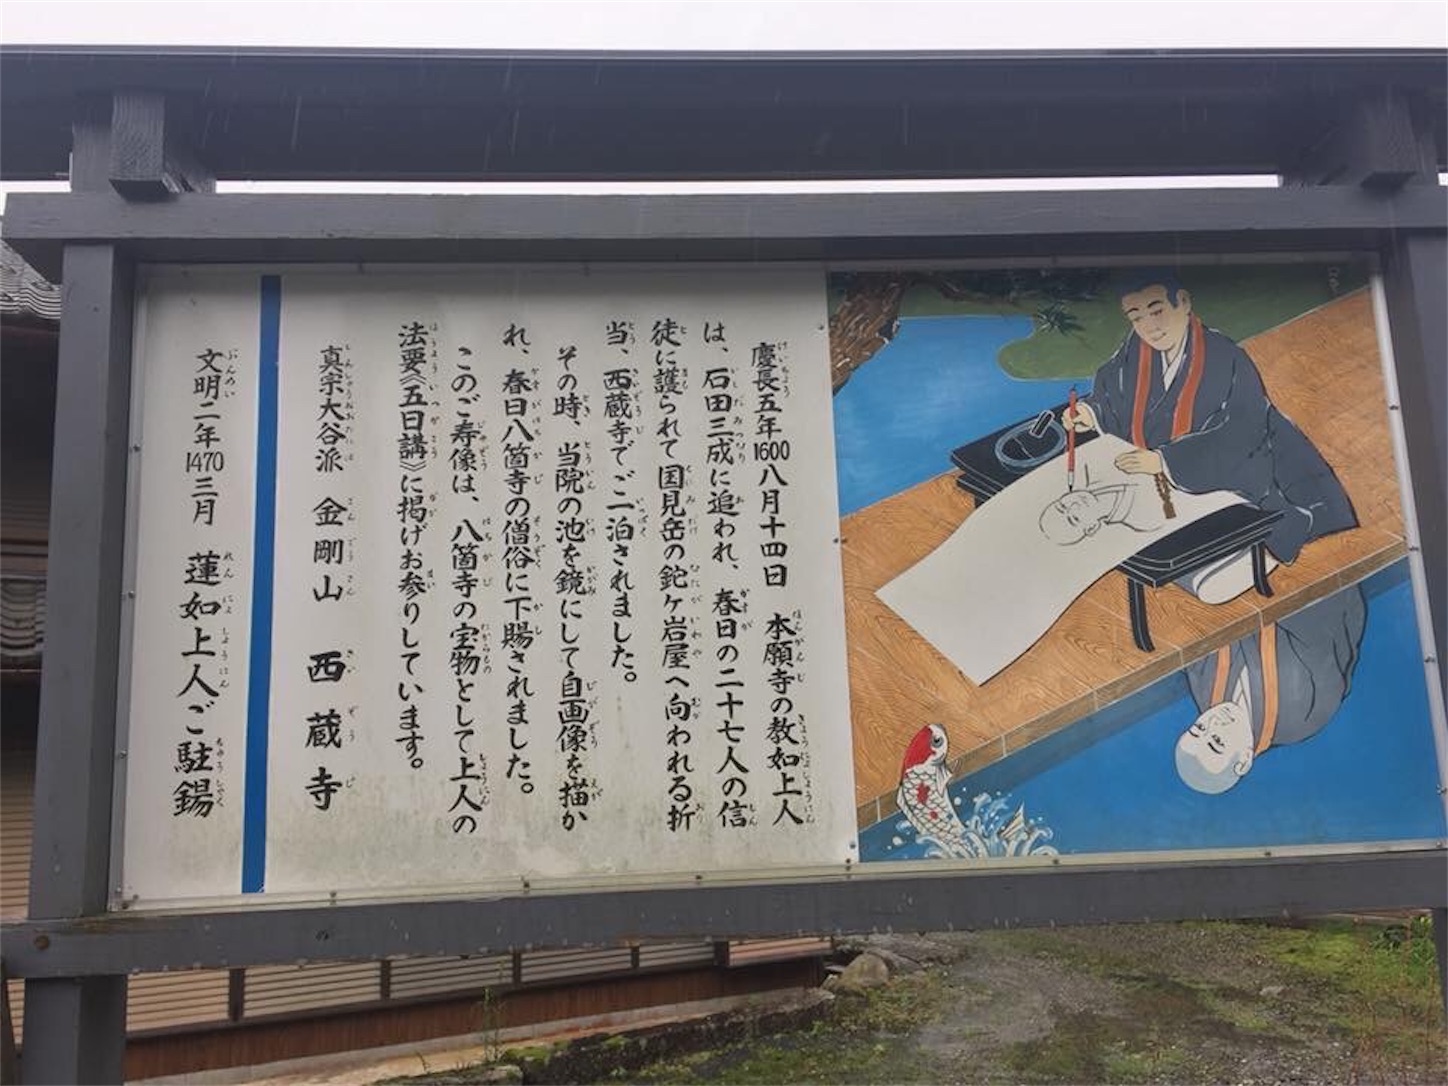 慶長五年1600八月十四日　本願寺の教如上人
は、石田三成に追われ、春日の二十七人の信
徒に護られて国見岳の鉈ヶ岩屋へ向われる折
当、西蔵寺でご一泊されました。
その時、当院の池を鏡にして自画像を描か
れ、春日八箇寺の僧俗に下賜されました。
このご寿像は、八箇寺の宝物として上人の
法要《五日講》に掲げお参りしています。
真宗大谷派　金剛山　西蔵寺
文明二年1470三月　蓮如上人ご駐錫